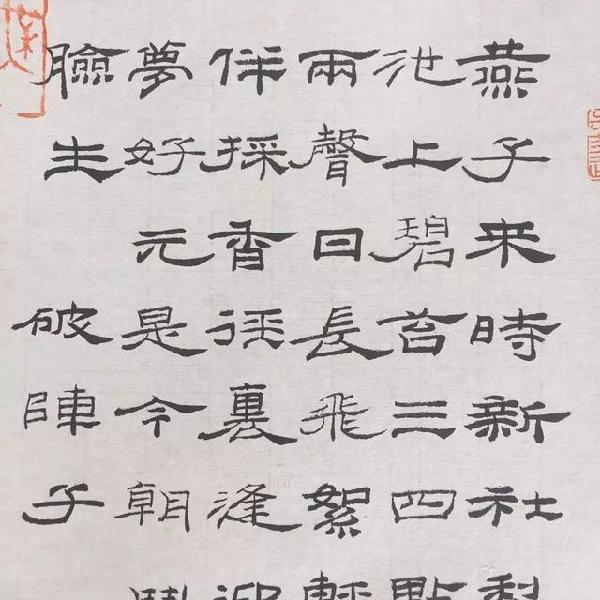 燕子来時新社梨
池上碧苔三四點
兩聲日長飛絮輕
伴採香徑裏逢迎
夢好元是今朝
臉生 破陣子